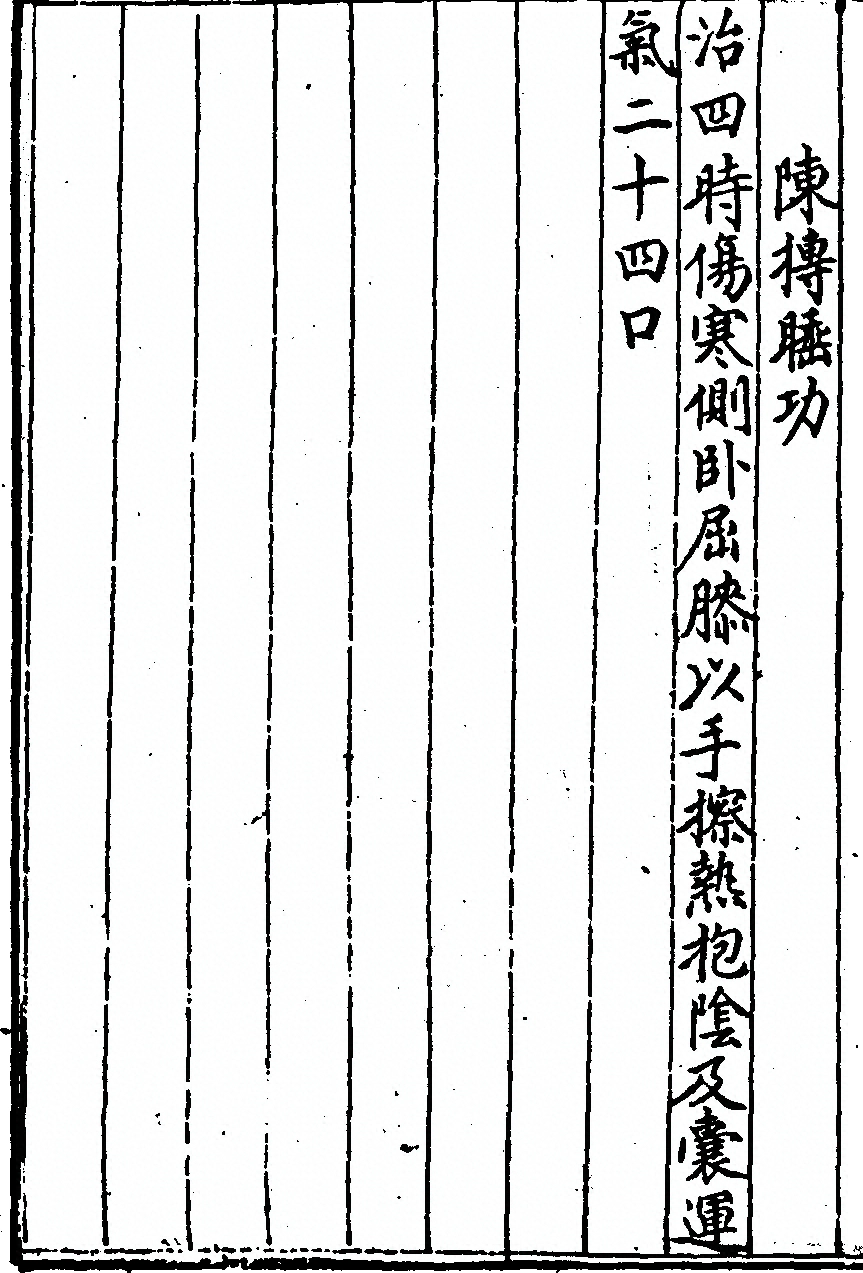 陳摶睡功
治四時傷寒側卧屈膝以手擦熱抱陰及囊運
氣二十四口